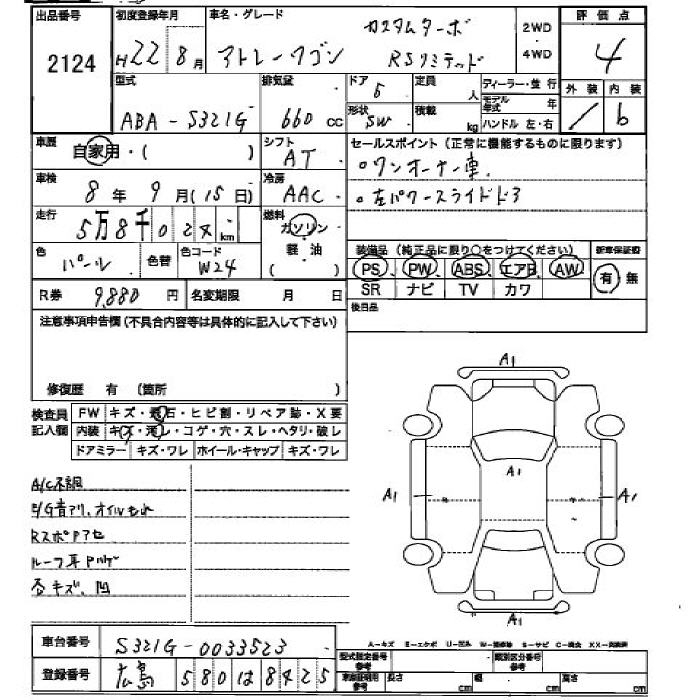 出品番号 初度登録年月 車名・グレード カスタムターボ 2WD 評価点
2124 H22 8月 アトレーワゴン RSリミテッド 4WD 4
型式 排気量 ドア 5 定員 人 ディーラー・並行 外装 内装
ABA-S321G 660cc 形状 SW 積載 kg モデル年式 年 ハンドル 左・右 b
車歴 自家用・( ) シフト AT セールスポイント (正常に機能するものに限ります)
車検 8年 9月 (15日) 冷房 AAC 。ワンオーナー車
走行 5万8千02× km 燃料 ガソリン 。左パワースライドドア
色 パール 色替 色コード W24 軽・油 ( )
装備品 (純正品に限り○をつけてください) 新車保証書
PS PW ABS エアB AW 有 無
SR ナビ TV カワ
R券 9,880円 名変期限 月 日 後日品
注意事項申告欄 (不具合内容等は具体的に記入して下さい)
修復歴 有 (箇所 )
検査員記入欄 FW キズ・飛石・ヒビ割・リペア跡・X要
内装 キズ・汚し・コゲ・穴・スレ・ヘタリ・破レ
ドアミラー キズ・ワレ ホイール・キャップ キズ・ワレ
A/C不調
E/G音アリ、オイルもれ
RスポPアセ
ルーフ耳Pハゲ
各キズ、凹
A1
A1
A1
A1
A1
A-キズ E-エクボ U-凹み W-補修跡 S-サビ C-腐食 XX-交換済
車台番号 S321G-0033523
登録番号 広島 580 は 8425
型式指定番号 参考 類別区分番号 参考
車庫証明用 参考 長さ cm 幅 cm 高さ cm